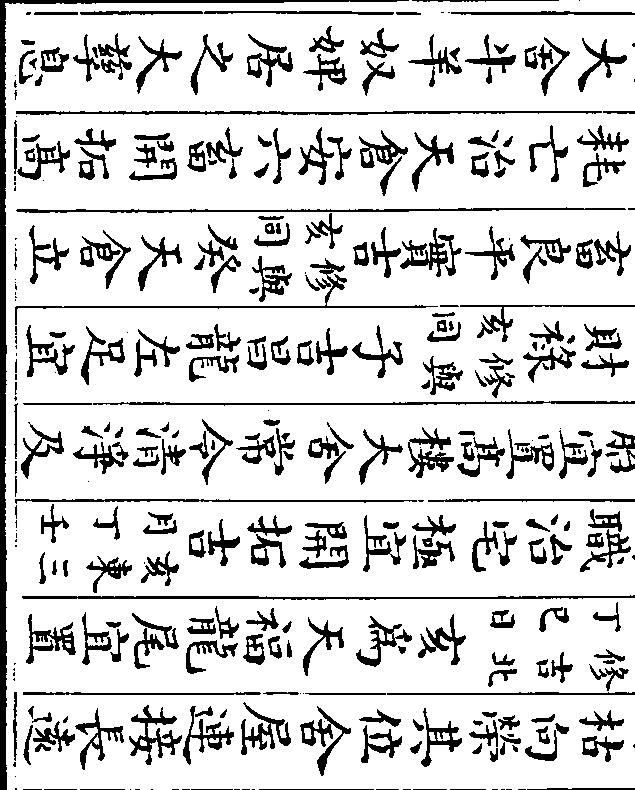 枯向榮其位舍屋連接長遠
修吉北丁巳日亥為天福龍尾宜置
職治宅極宜開拓吉亥東三月丁壬
胎宜置高樓大舍常令清淨及
財祿修與亥同子吉昌龍左足宜
畜良平實吉修與亥同癸天倉立
耗亡治天倉安六畜開拓高
大舍牛羊奴婢居之大孽息